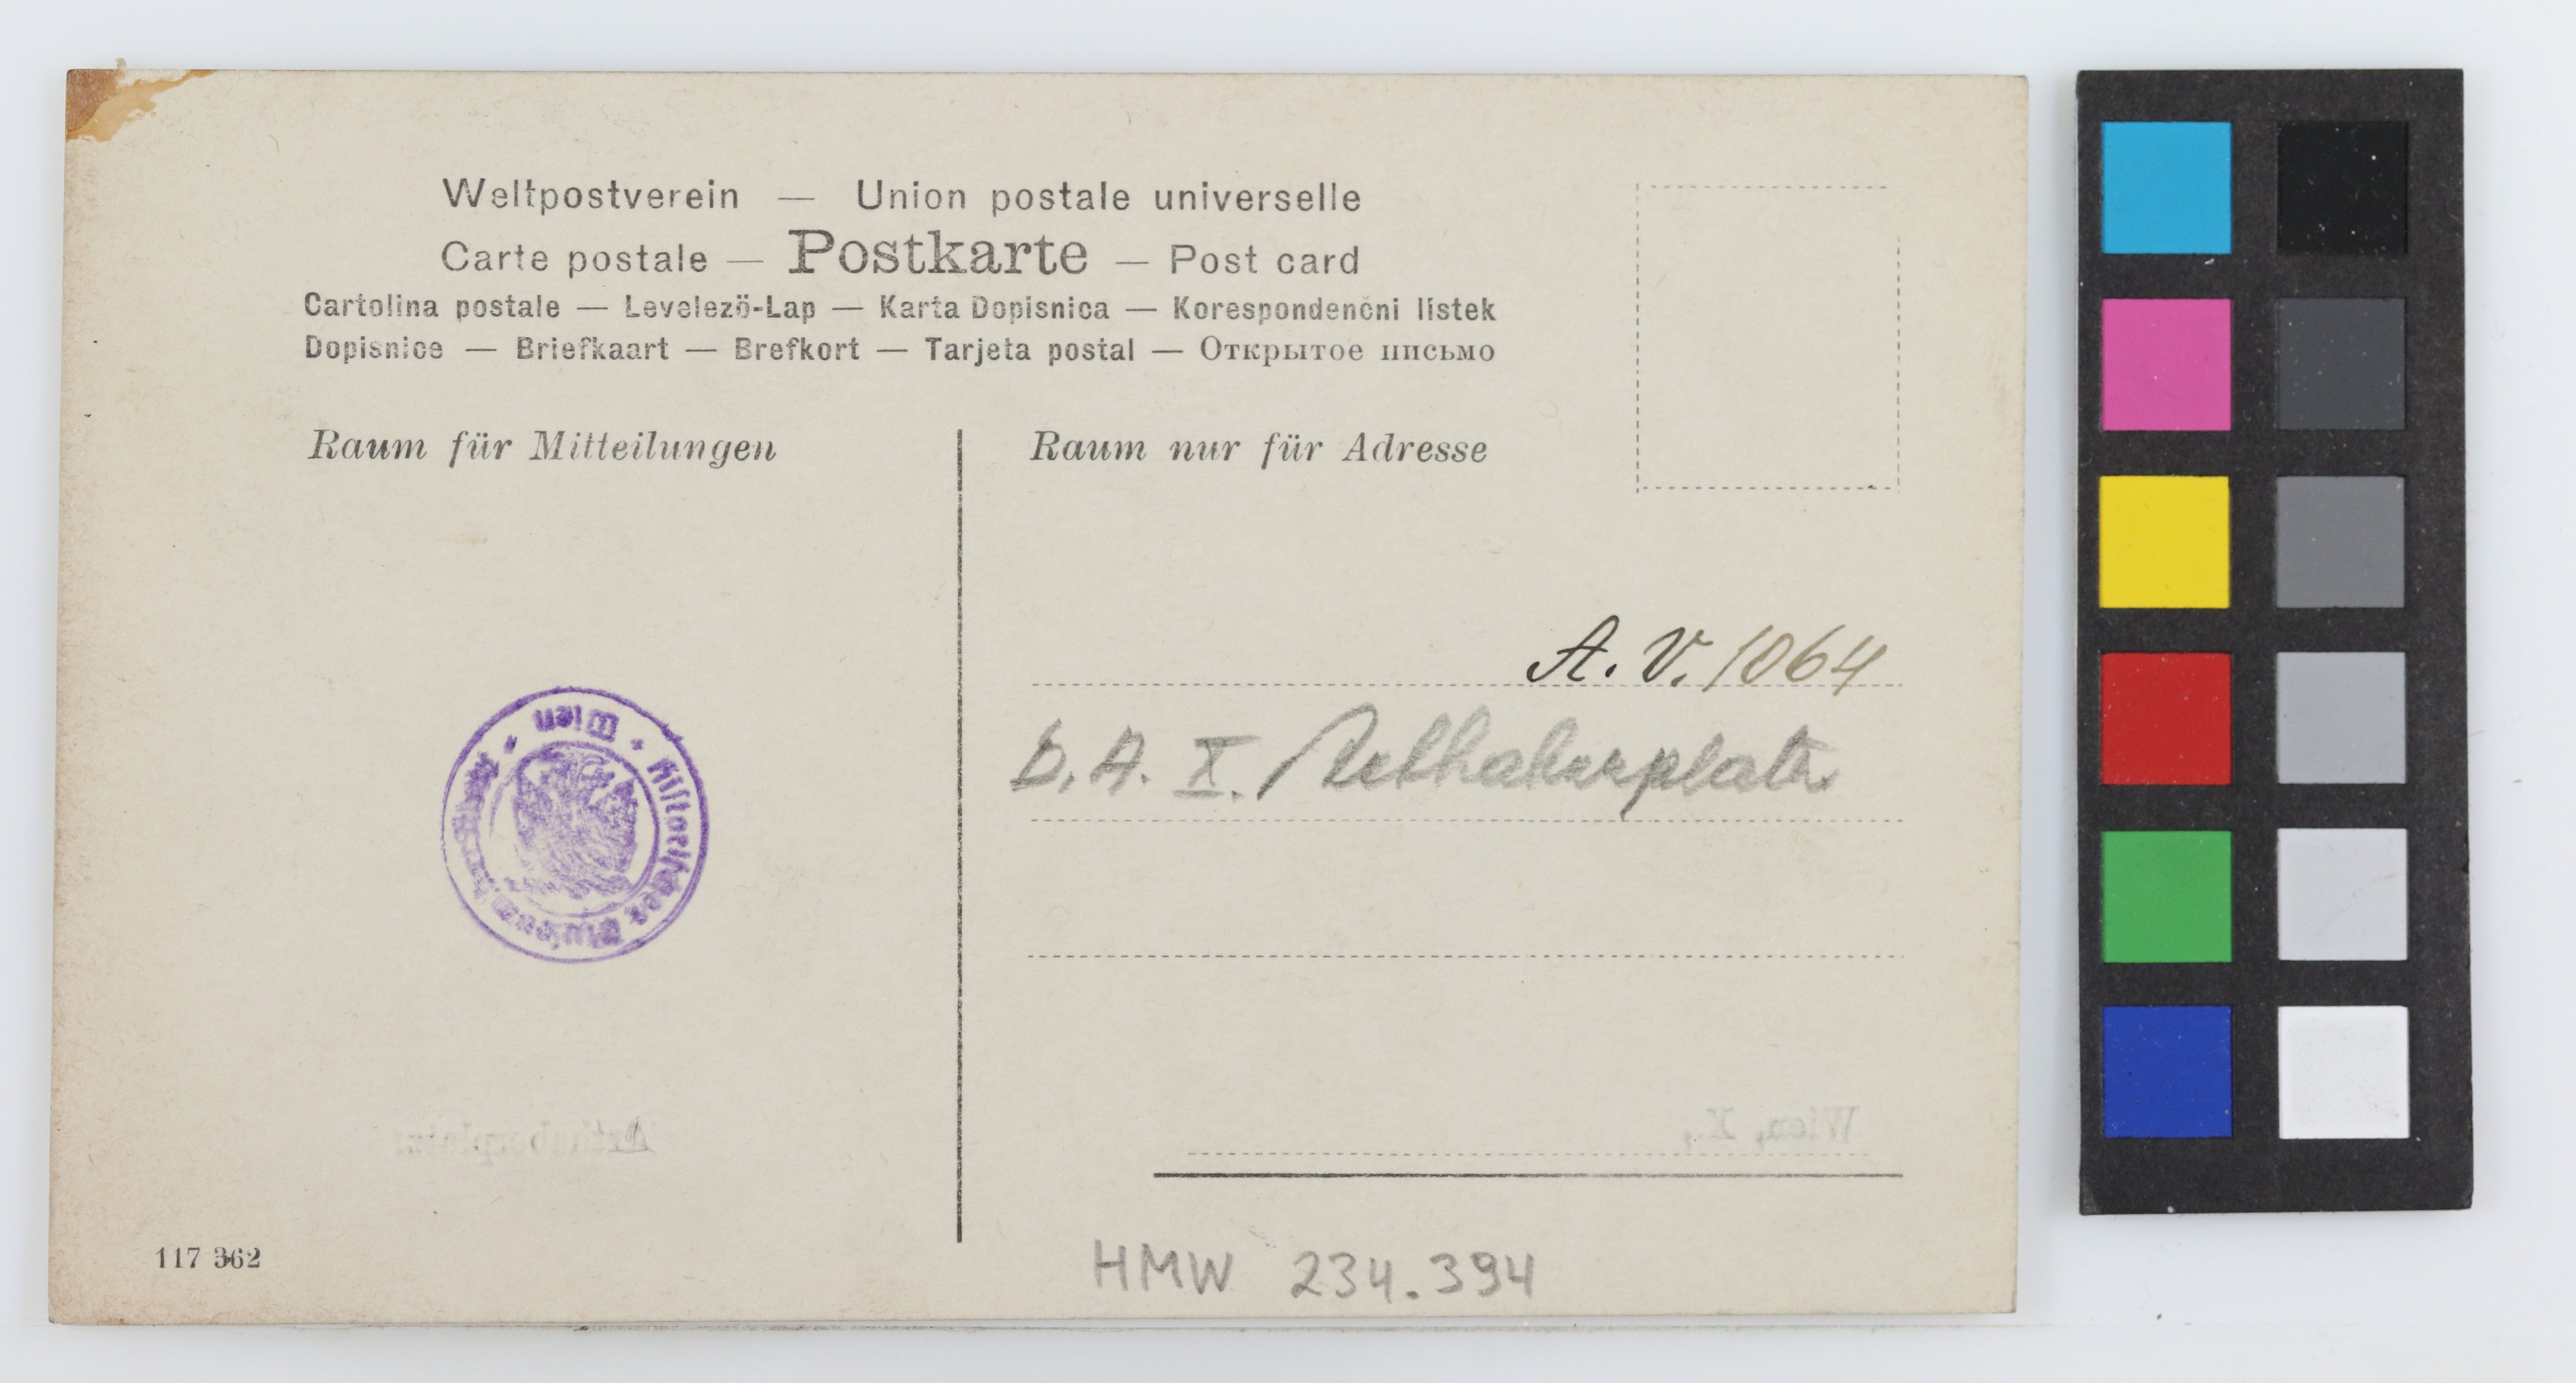 Weltpostverein — Union postale universelle
Carte postale — Postkarte — Post card
Cartolina postale — Levelezö-Lap — Karta Dopisnica — Korespondenční lístek
Dopisnice — Briefkaart — Brefkort — Tarjeta postal — Открытое письмо
Raum für Mitteilungen
Raum nur für Adresse
A. V. 1064
X. Arthaberplatz
Historisches Museum Wien
Arthaberplatz
Wien, X.,
117 362
HMW 234.394